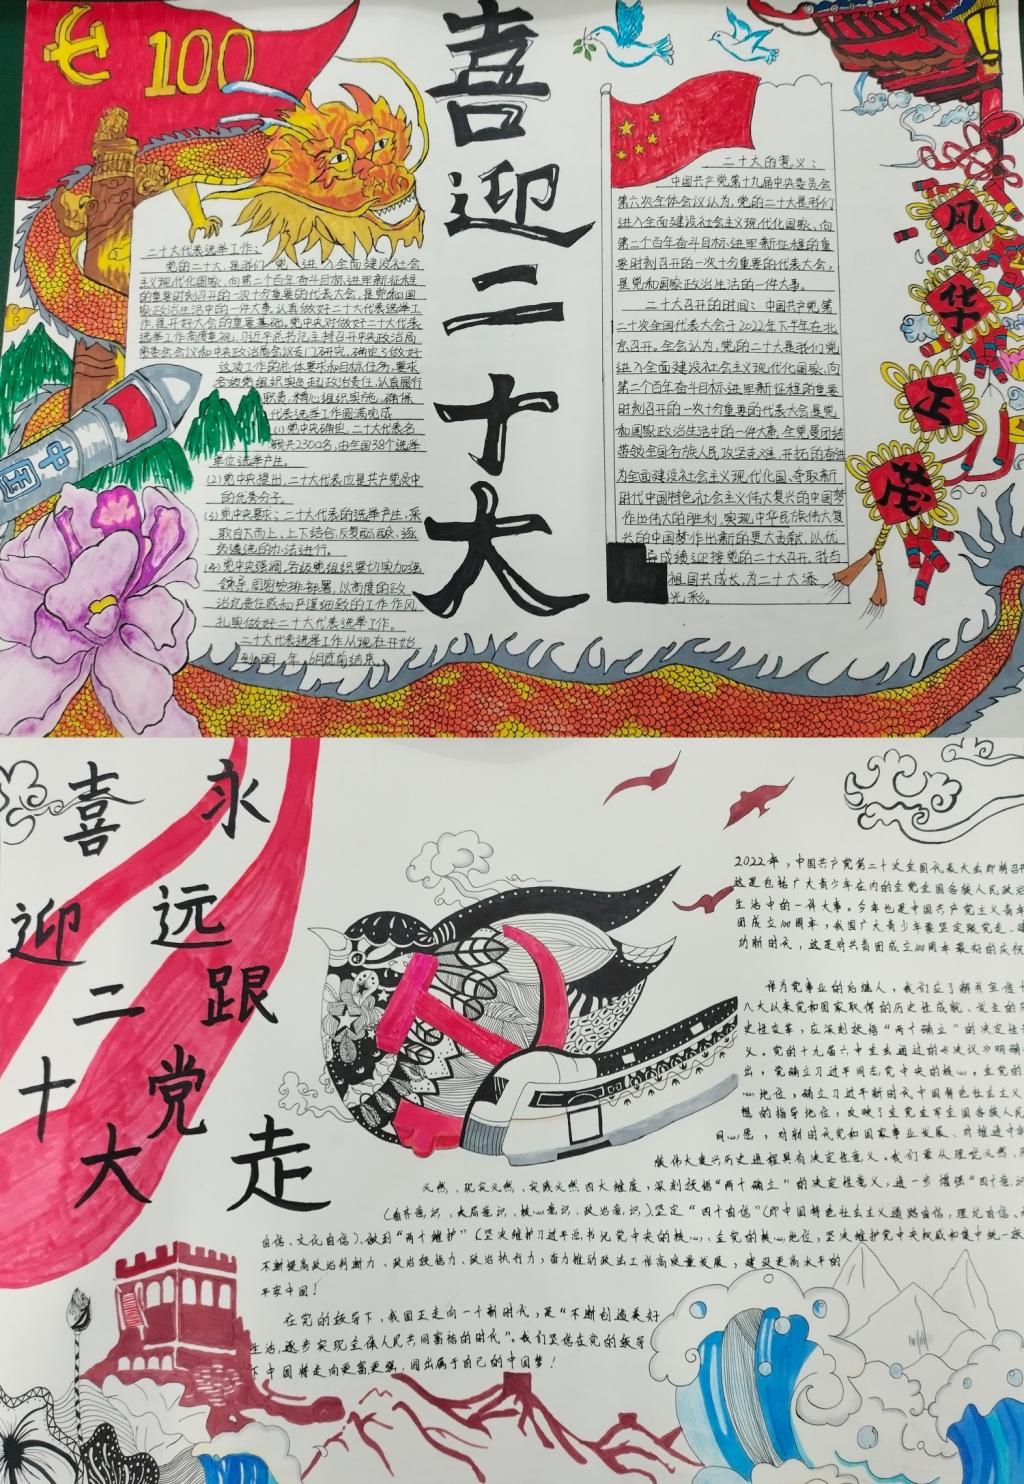 100
喜迎二十大
中国
风华正茂
二十大代表选举工作：
党的二十大，是我们党进入全面建设社会
主义现代化国家、向第二个百年奋斗目标进军新征程
的重要时刻召开的一次十分重要的代表大会，是党和国
家政治生活中的一件大事。认真做好二十大代表选举工
作，是开好大会的重要基础。党中央对做好二十大代表
选举工作高度重视，习近平总书记主持召开中央政治局
常委会会议和中央政治局会议专门研究，确定了做好
这项工作的总体要求和目标任务，要求
各级党组织实负起政治责任，认真履行
职责，精心组织实施，确保
代表选举工作圆满完成
(1)党中央确定，二十大代表名
额共2300名，由全国38个选举
单位选举产生。
(2)党中央提出，二十大代表应是共产党员中
的优秀分子。
(3)党中央要求：二十大代表的选举产生，采
取自下而上、上下结合、反复酝酿、逐
级遴选的办法进行。
(4)党中央强调，各级党组织要切实加强
领导，周密安排部署，以高度的政
治责任感和严谨细致的工作作风，
扎实做好二十大代表选举工作。
二十大代表选举工作从现在开始
二十大的意义：
中国共产党第十九届中央委员会
第六次全体会议认为，党的二十大是我们
进入全面建设社会主义现代化国家、向
第二个百年奋斗目标进军新征程的重
要时刻召开的一次十分重要的代表大会，
是党和国家政治生活的一件大事。
二十大召开的时间：中国共产党第
二十次全国代表大会于2022年下半年在北
京召开。全会认为，党的二十大是我们党
进入全面建设社会主义现代化国家、向
第二个百年奋斗目标进军新征程的重要
时刻召开的一次十分重要的代表大会是党
和国家政治生活中的一件大事。全党要团结
带领全国各族人民攻坚克难、开拓的奋进
为全面建设社会主义现代化国、夺取新
时代中国特色社会主义伟大复兴的中国梦
作出伟大的胜利，实现中华民族伟大复
兴的中国梦作出新的更大贡献，以优
异成绩迎接党的二十大召开。我与
祖国共成长，为二十大添
光彩。
喜迎二十大
永远跟党走
2022年，中国共产党第二十次全国代表大会即将召开
这是包括广大青少年在内的全党全国各族人民政治
生活中的一件大事。今年也是中国共产党主义青年
团成立100周年，我国广大青少年要坚定跟党走、建
功新时代，这是对共青团成立100周年最好的庆祝
作为党事业的后继人，我们应了解并宣传十
八大以来党和国家取得的历史性成就、发生的历
史性变革，应深刻领悟“两个确立”的决定性意
义。党的十九届六中全会通过的《决议》明确
出，党确立习近平同志党中央的核心、全党的
心地位，确立习近平新时代中国特色社会主义
想的指导地位，反映了全党全军全国各族人民
同心愿，对新时代党和国家事业发展、对推进中华
族伟大复兴历史进程具有决定性意义。我们要从理论必然、历
必然、现实必然、实践必然四大维度，深刻领悟“两个确立”的决定性意义，进一步增强“四个意识”
意识、大局意识、核心意识、政治意识）坚定“四个自信”（即中国特色社会主义道路自信，理论自信、
自信、文化自信），做到“两个维护”（坚决维护习近平总书记党中央的核心、全党的核心地位，坚决维护党中央权威和集中统一领
不断提高政治判断力、政治领悟力、政治执行力，奋力推动政法工作高质量发展，建设更高水平的
平安中国！
在党的领导下，我国正走向一个新时代，是“不断创造美好
生活，逐步实现全体人民共同富裕的时代”。我们坚信在党的领导
下中国将走向更富更强，圆出属于自己的中国梦！